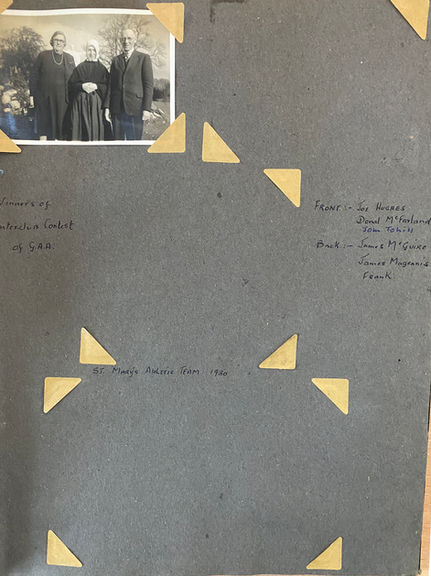 Winners of
Interclub Contest
of G.A.A.
FRONT:- Joe HUGHES
Donal McFarland
Tom Tohill
BACK:- James McGuire
James Magennis
Frank
ST. MARY'S ATHLETIC TEAM 1930